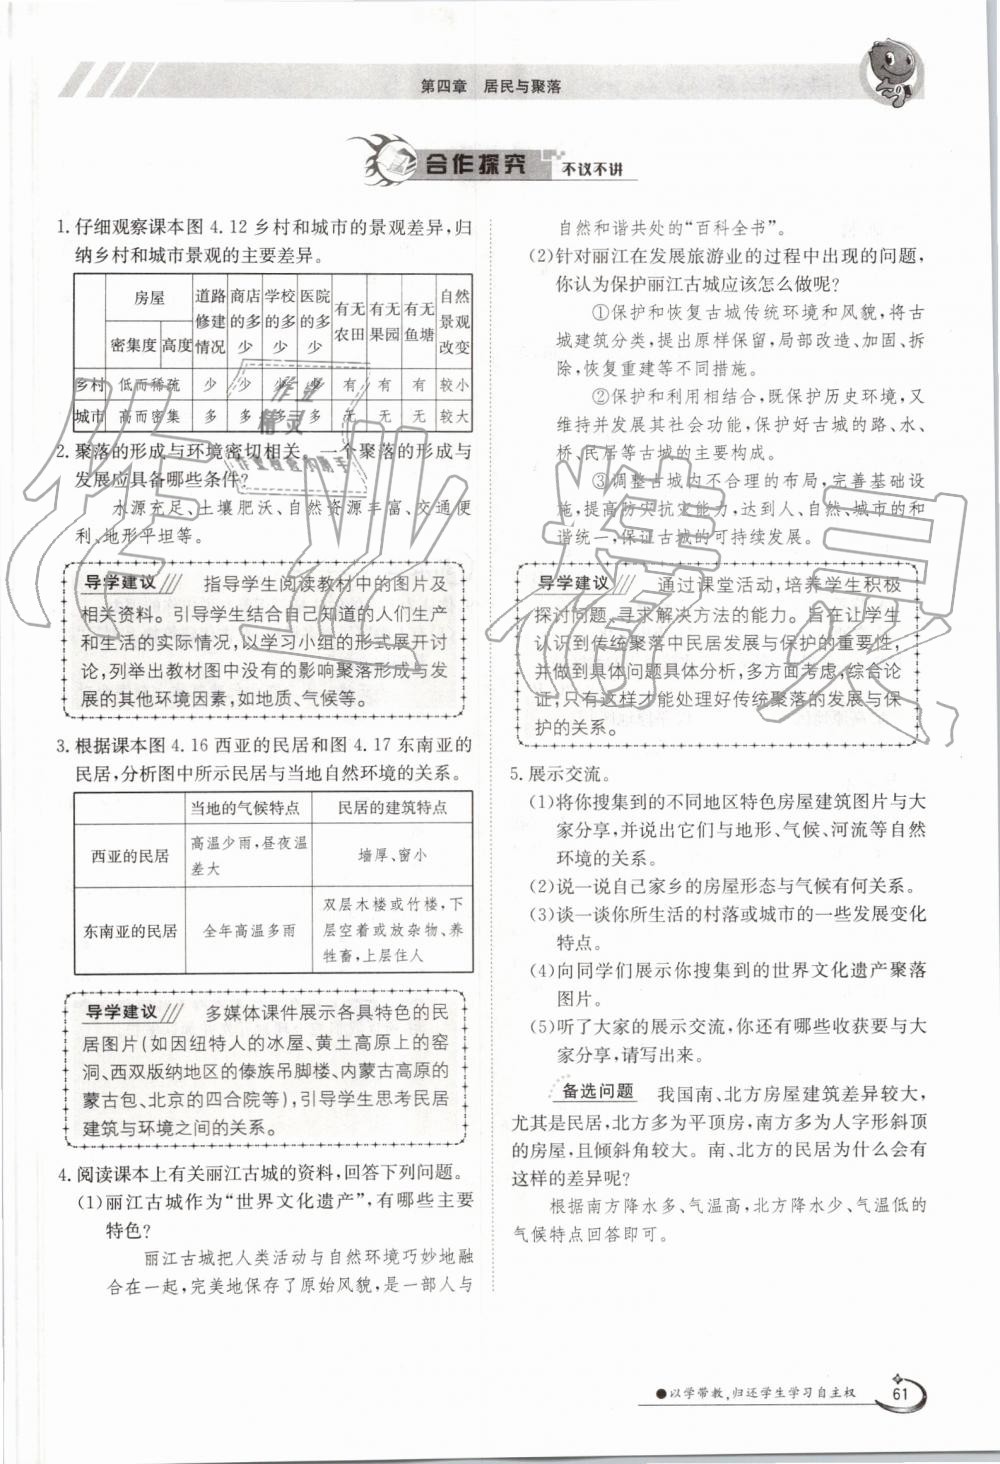 第四章 居民与聚落
合作探究 不议不讲
1. 仔细观察课本图 4.12 乡村和城市的景观差异,归
纳乡村和城市景观的主要差异。
房屋 道路修建情况 商店的多少 学校的多少 医院的多少 有无农田 有无果园 有无鱼塘 自然景观改变
密集度 高度
乡村 低而稀疏 少 少 少 少 有 有 有 较小
城市 高而密集 多 多 多 多 无 无 无 较大
2. 聚落的形成与环境密切相关。一个聚落的形成与
发展应具备哪些条件?
水源充足、土壤肥沃、自然资源丰富、交通便
利、地形平坦等。
导学建议 指导学生阅读教材中的图片及
相关资料。引导学生结合自己知道的人们生产
和生活的实际情况,以学习小组的形式展开讨
论,列举出教材图中没有的影响聚落形成与发
展的其他环境因素,如地质、气候等。
3. 根据课本图 4.16 西亚的民居和图 4.17 东南亚的
民居,分析图中所示民居与当地自然环境的关系。
当地的气候特点 民居的建筑特点
西亚的民居 高温少雨,昼夜温差大 墙厚、窗小
东南亚的民居 全年高温多雨 双层木楼或竹楼,下层空着或放杂物、养牲畜,上层住人
导学建议 多媒体课件展示各具特色的民
居图片(如因纽特人的冰屋、黄土高原上的窑
洞、西双版纳地区的傣族吊脚楼、内蒙古高原的
蒙古包、北京的四合院等),引导学生思考民居
建筑与环境之间的关系。
4. 阅读课本上有关丽江古城的资料,回答下列问题。
(1)丽江古城作为“世界文化遗产”,有哪些主要
特色?
丽江古城把人类活动与自然环境巧妙地融
合在一起,完美地保存了原始风貌,是一部人与
自然和谐共处的“百科全书”。
(2)针对丽江在发展旅游业的过程中出现的问题,
你认为保护丽江古城应该怎么做呢?
①保护和恢复古城传统环境和风貌,将古
城建筑分类,提出原样保留,局部改造、加固、拆
除,恢复重建等不同措施。
②保护和利用相结合,既保护历史环境,又
维持并发展其社会功能,保护好古城的路、水、
桥、民居等古城的主要构成。
③调整古城内不合理的布局,完善基础设
施,提高防灾抗灾能力,达到人、自然、城市的和
谐统一,保证古城的可持续发展。
导学建议 通过课堂活动,培养学生积极
探讨问题、寻求解决方法的能力。旨在让学生
认识到传统聚落中民居发展与保护的重要性,
并做到具体问题具体分析,多方面考虑,综合论
证,只有这样才能处理好传统聚落的发展与保
护的关系。
5. 展示交流。
(1)将你搜集到的不同地区特色房屋建筑图片与大
家分享,并说出它们与地形、气候、河流等自然
环境的关系。
(2)说一说自己家乡的房屋形态与气候有何关系。
(3)谈一谈你所生活的村落或城市的一些发展变化
特点。
(4)向同学们展示你搜集到的世界文化遗产聚落
图片。
(5)听了大家的展示交流,你还有哪些收获要与大
家共享,请写出来。
备选问题 我国南、北方房屋建筑差异较大,
尤其是民居,北方多为平顶房,南方多为人字形斜顶
的房屋,且倾斜角较大。南、北方的民居为什么会有
这样的差异呢?
根据南方降水多、气温高,北方降水少、气温低的
气候特点回答即可。
●以学带教,归还学生学习自主权
61
作业精灵
作业
精灵
作业检查小助手